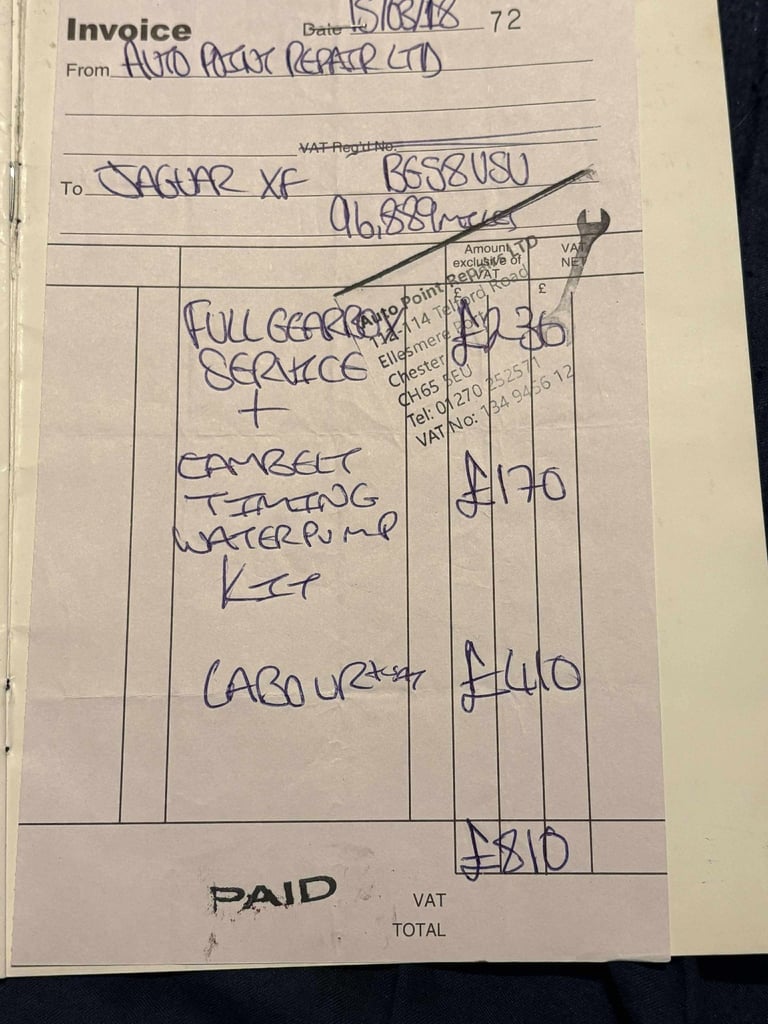 Invoice Date 15/03/18 72
From AUTO POINT REPAIR LTD
VAT Reg'd No.
To JAGUAR XF BG58USU
96,889 MILES
Amount exclusive of VAT
VAT NET
£ £
Auto Point Repairs LTD
114 Telford Road
Ellesmere Port
Chester
CH65 5EU
Tel: 01270 252571
VAT No: 134 9456 12
FULL GEARBOX £236
SERVICE
+
CAMBELT
TIMING £170
WATERPUMP
KIT
LABOUR+VAT £410
£810
PAID
VAT
TOTAL